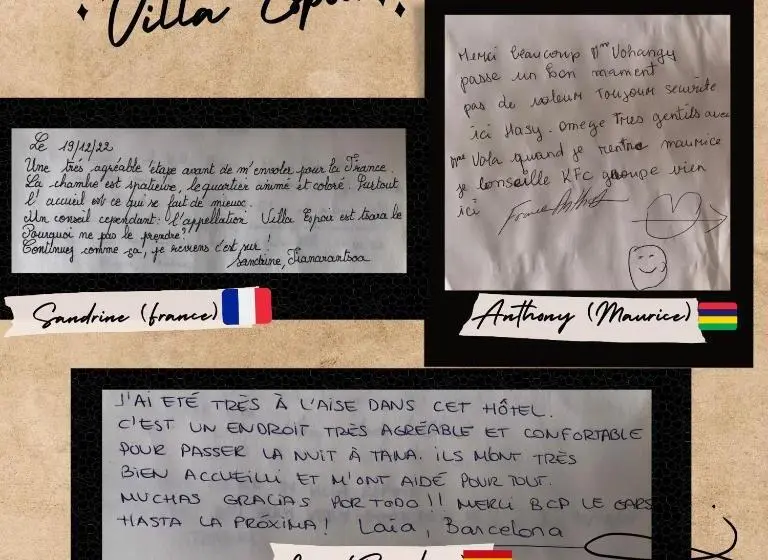 Villa Espoir
Le 19/12/22
Une très agréable étape avant de m'envoler pour la France.
La chambre est spatieuse, le quartier animé et coloré. Surtout
l'accueil est ce qui se fait de mieux.
Un conseil cependant: l'appellation Villa Espoir est tsara be
Pourquoi ne pas le prendre?
Continuez comme ça, je reviens c'est sur!
Sandrine, Fianarantsoa
Sandrine (france)
Merci beaucoup Mme Vohangy
passe un bon mament
pas de voleur Toujour securite
ici Hasy. omega Tres gentils avec
Mme Vola quand je rentre maurice
je conseille KFC groupe vien
ici
Anthony (Maurice)
J'AI ETÉ TRÈS À L'AISE DANS CET HÔTEL.
C'EST UN ENDROIT TRÈS AGRÉABLE ET CONFORTABLE
POUR PASSER LA NUIT À TANA. ILS M'ONT TRÈS
BIEN ACCUEILLI ET M'ONT AIDÉ POUR TOUT.
MUCHAS GRACIAS POR TODO!! MERCI BCP LE GARS
HASTA LA PRÓXIMA! Laia, Barcelona